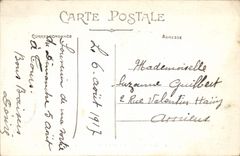 CARTE POSTALE
CORRESPONDANCE
ADRESSE
Le 6 août 1917
Souvenir de ma
Dimanche 5 août
Bons Baisers
Mademoiselle
Suzanne Guilbert
2 Rue Valentin Haüy
Amiens